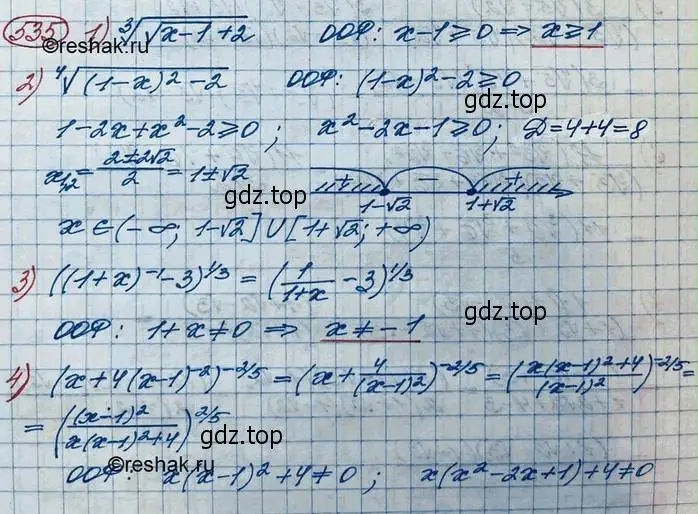 535 1) ∛(√x-1+2) ООФ: x-1≥0 ⇒ x≥1
2) ⁴√((1-x)²-2) ООФ: (1-x)²-2≥0
gdz.top
1-2x+x²-2≥0; x²-2x-1≥0; Д=4+4=8
x₁,₂ = (2±2√2)/2 = 1±√2 + − +
gdz.top
1-√2 1+√2
x∈(-∞; 1-√2]∪[1+√2; +∞)
3) ((1+x)⁻¹-3)^1/3 = (1/(1+x) -3)^1/3
gdz.top
ООФ: 1+x≠0 ⇒ x≠-1
4) (x+4(x-1)⁻²)^-2/5 = (x+4/(x-1)²)^-2/5 = ((x(x-1)²+4)/(x-1)²)^-2/5 =
= ((x-1)²/(x(x-1)²+4))^2/5
gdz.top
©reshak.ru ©reshak.ru
ООФ: x(x-1)²+4≠0; x(x²-2x+1)+4≠0